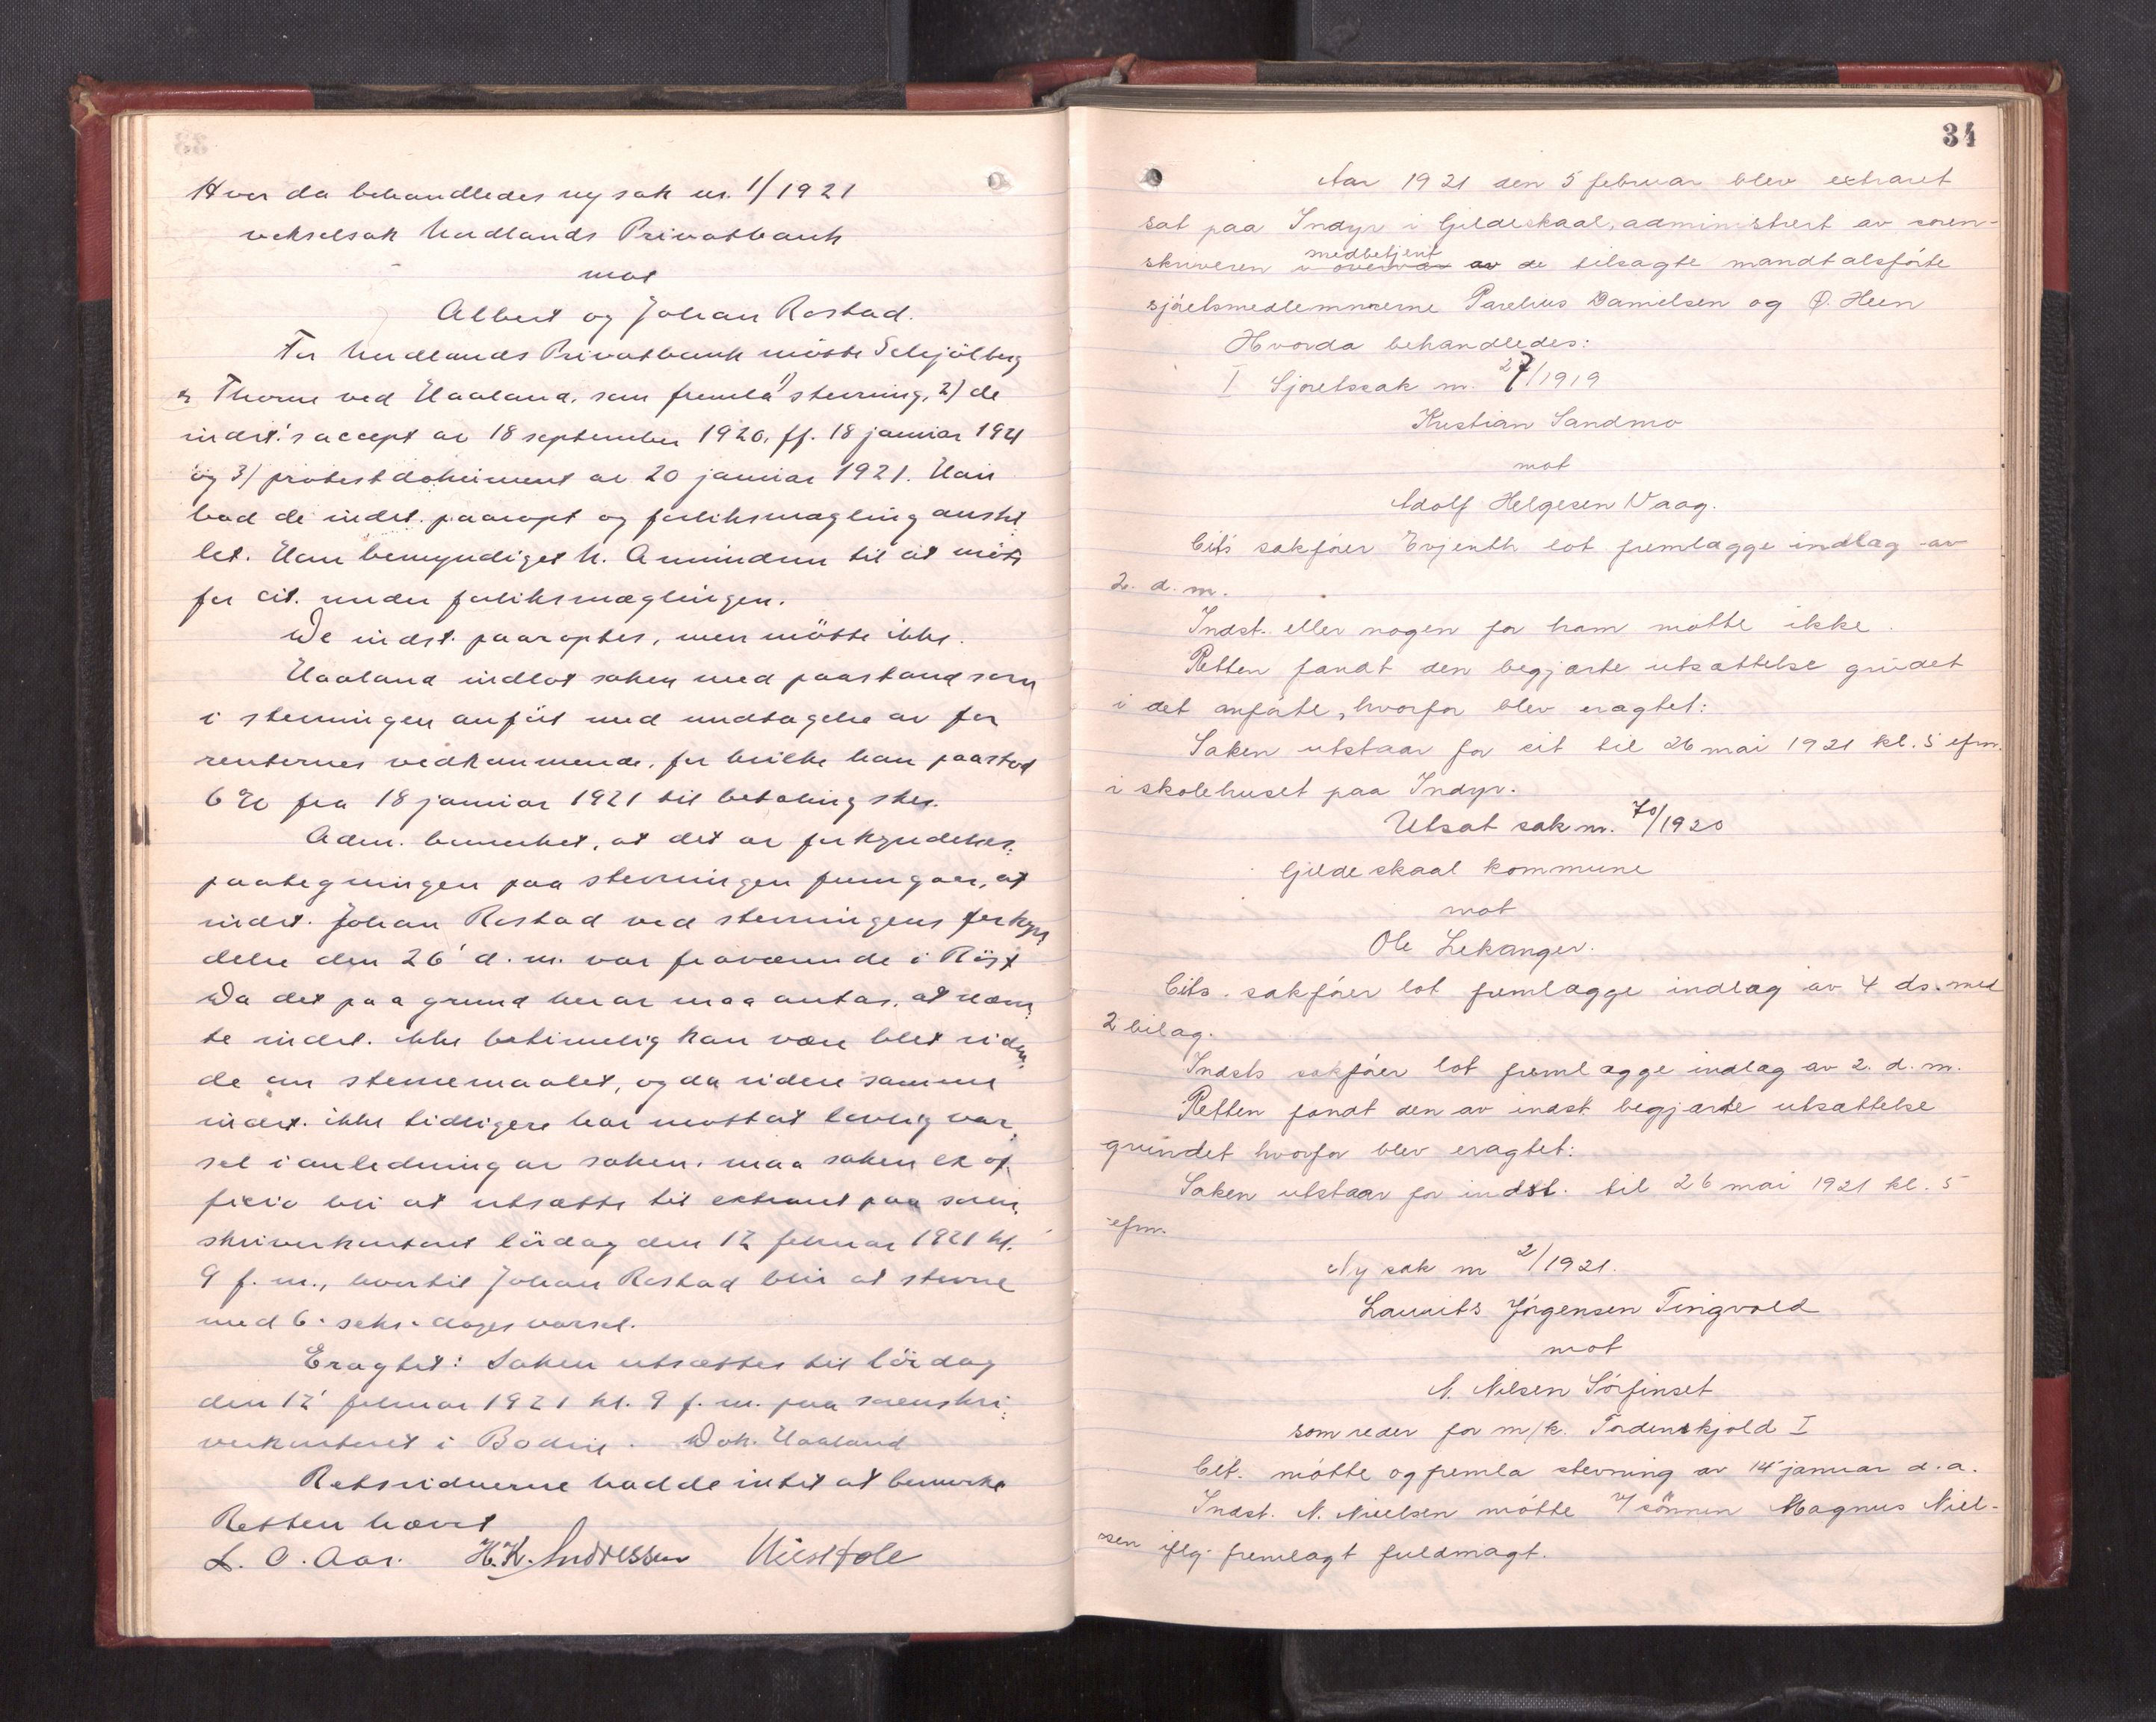 Hvor da behandledes ny sak nr. 1/1921
vekselsak Nordlands Privatbank
mot
Albert og Johan Rostad.
For Nordlands Privatbank mötte Schjölberg
& Thorne ved Haaland, som fremla 1) stevning, 2) de
indst.'s accept av 18 september 1920, ff. 18 januar 1921
og 3) protestdokument av 20 januar 1921. Han
bad de indst. paaropt og forliksmægling anstil
let. Han bemyndiget N. Amundsen til at möte
for cit. under forliksmæglingen.
De indst. paaroptes, men mötte ikke.
Haaland indlot saken med paastand som
i stevningen anfört med undtagelse av for
renternes vedkommende, for hvilke han paastod
6 % fra 18 januar 1921 til betaling sker.
Adm. bemerket, at det av forkyndelses-
paategningen paa stevningen fremgaar, at
indst. Johan Rostad ved stevningens forkyn
delse den 26' d. m. var fraværende i Röst
Da det paa grund herav maa antas, at nævn
te indst. ikke betimelig kan være blet viden
de om stevnemaalet, og da videre samme
indst. ikke tidligere har mottat lovlig var-
sel i anledning av saken, maa saken ex of-
ficio bli at utsætte til extraret paa soren-
skriverkontoret lördag den 12 februar 1921 kl.
9 f. m., hvortil Johan Rostad blir at stevne
med 6 - seks - dages varsel.
Eragtet: Saken utsættes til lördag
den 12' februar 1921 kl. 9 f. m. paa sorenskri-
verkontoret i Bodin. Dok. Haaland
Retsvidnerne hadde intet at bemerke
Retten hævet
L. O. Aar. H. K. Andressen
34
Aar 1921 den 5 februar blev extraret
sat paa Indyr i Gildeskaal, administrert av soren-
skriveren medbetjent i overvær av de tilsagte mandtalsförte
sjöretsmedlemmerne Parelius Danielsen og O. Heen
Hvorda behandledes:
I Sjöretssak nr. 27/1919
Kristian Sandmo
mot
Adolf Helgesen Vaag.
Cits sakförer Evjenth lot fremlægge indlæg av
2. d. m.
Indst. eller nogen for ham mötte ikke.
Retten fandt den begjærte utsættelse grundet
i det anförte, hvorfor blev eragtet:
Saken utstaar for cit til 26 mai 1921 kl. 5 efm.
i skolehuset paa Indyr.
Utsat sak nr. 70/1920
Gildeskaal kommune
mot
Ole Lekanger.
Cits. sakförer lot fremlægge indlæg av 4 ds. med
2 bilag.
Indsts sakförer lot fremlægge indlæg av 2. d. m.
Retten fandt den av indst begjærte utsættelse
grundet hvorfor blev eragtet:
Saken utstaar for indst. til 26 mai 1921 kl. 5
efm.
Ny sak nr 2/1921.
Laurits Jörgensen Tingvold
mot
N. Nilsen Sörfinset
som reder for m/k. Tordenskjold I
Cit. mötte og fremla stevning av 14 januar d. a.
Indst. N. Nielsen mötte v/ sönnen Magnus Niel-
sen iflg. fremlagt fuldmagt.